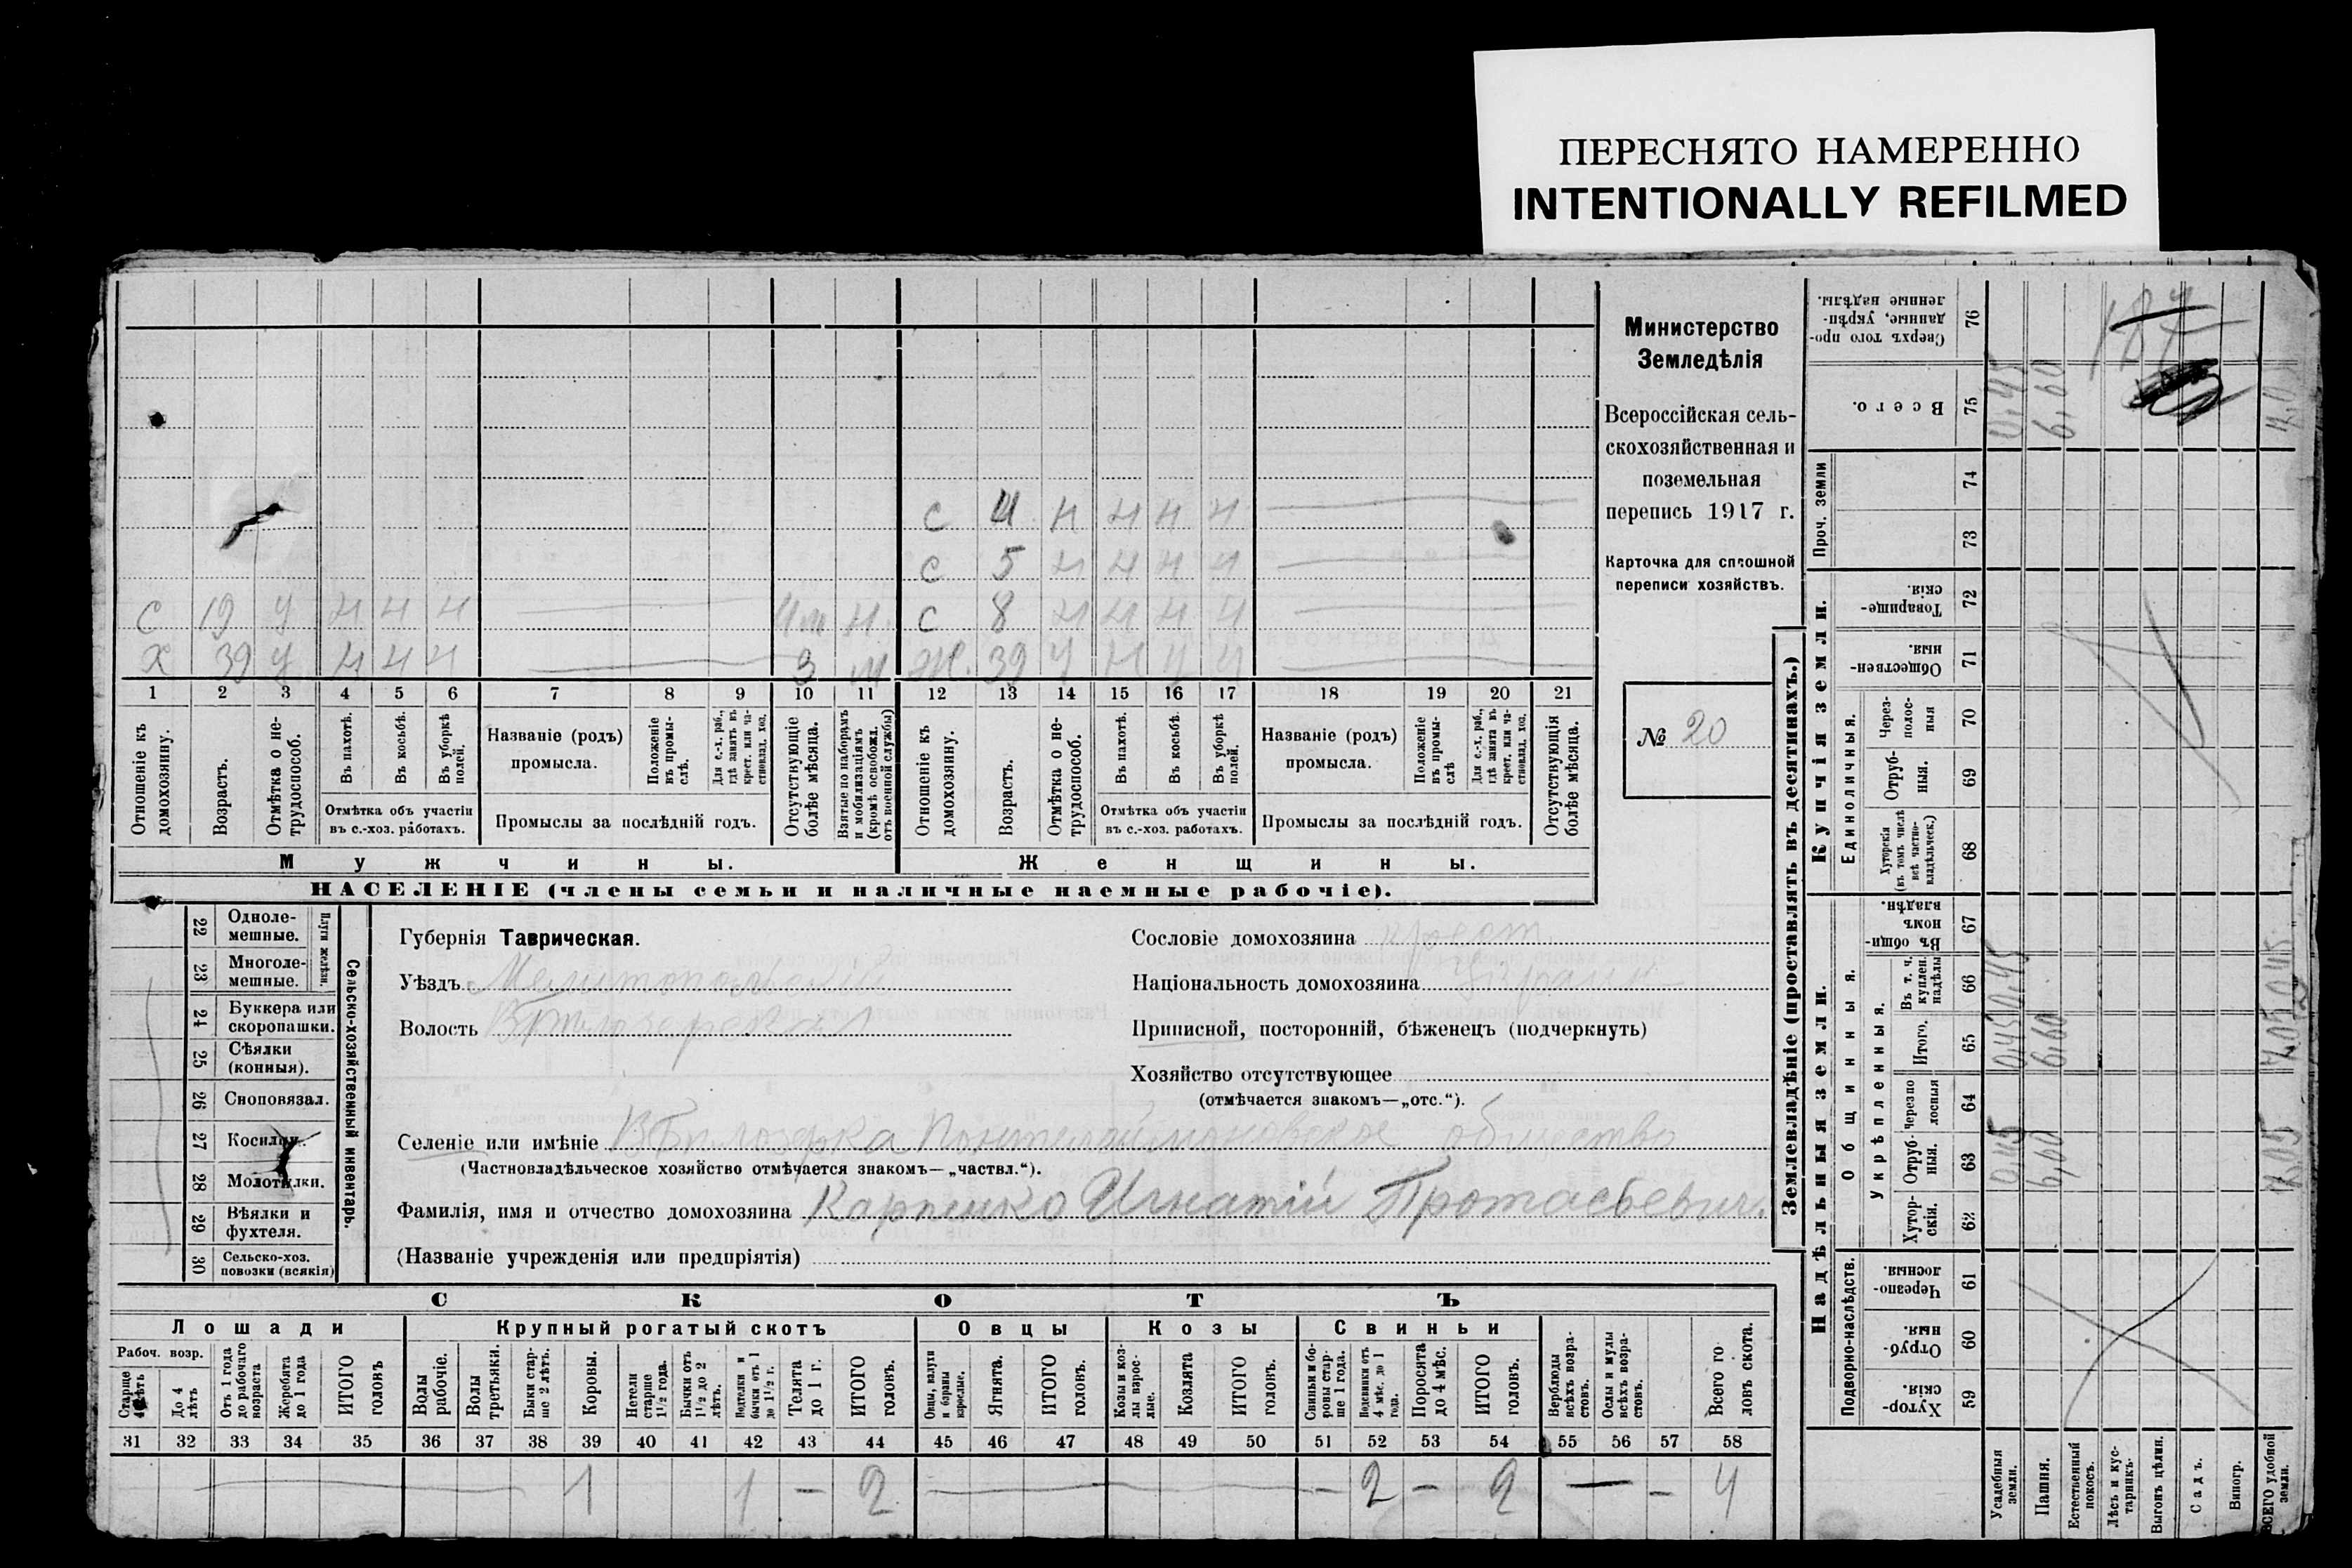 ПЕРЕСНЯТО НАМЕРЕННО
INTENTIONALLY REFILMED
Министерство
Земледѣлія
Всероссійская сель-
скохозяйственная и
поземельная
перепись 1917 г.
Карточка для сплошной
переписи хозяйствъ.
№ 20
с 4 н н н н
с 5 н н н н
с 19 у н н н н с 8 н н н н
х 39 у н н н 3 м ж. 39 у н у у
1 2 3 4 5 6 7 8 9 10 11 12 13 14 15 16 17 18 19 20 21
Отношеніе къ домохозяину.
Возрастъ.
Отмѣтка о не-трудоспособ.
Въ пахотѣ.
Въ косьбѣ.
Въ уборкѣ полей.
Отмѣтка объ участіи
въ с.-хоз. работахъ.
Названіе (родъ)
промысла.
Положеніе въ промы-слѣ.
Для с.-х. раб., гдѣ занятъ въ крест. или ча-стновлад. хоз.
Промыслы за послѣдній годъ.
Отсутствующіе болѣе мѣсяца.
Взятые по наборамъ и мобилизаціямъ (кромѣ освобожд. отъ военной службы)
Отношеніе къ домохозяину.
Возрастъ.
Отмѣтка о не-трудоспособ.
Въ пахотѣ.
Въ косьбѣ.
Въ уборкѣ полей.
Отмѣтка объ участіи
въ с.-хоз. работахъ.
Названіе (родъ)
промысла.
Положеніе въ промы-слѣ
Для с.-х. раб., гдѣ занята въ крест. или ча-стновлад. хоз.
Промыслы за послѣдній годъ.
Отсутствующія болѣе мѣсяца.
Мужчины.
Женщины.
НАСЕЛЕНІЕ (члены семьи и наличные наемные рабочіе).
22 Одноле-мешные.
23 Многоле-мешные.
Плуги желѣзн.
24 Буккера или скоропашки.
25 Сѣялки (конныя).
26 Сноповязал.
27 Косилки.
28 Молотилки.
29 Вѣялки и фухтеля.
30 Сельско-хоз. повозки (всякія)
Сельско-хозяйственный инвентарь.
Губернія Таврическая.
Уѣздъ Мелитопольскій
Волость В Бѣлозерская
Сословіе домохозяина крест.
Національность домохозяина Украин
Приписной, посторонній, бѣженецъ (подчеркнуть)
Хозяйство отсутствующее
(отмѣчается знакомъ—„отс.“).
Селеніе или имѣніе В Бѣлозерка Пантелаймоновское общество
(Частновладѣльческое хозяйство отмѣчается знакомъ—„частвл.“).
Фамилія, имя и отчество домохозяина Карпенко Игнатій Протасьевич.
(Названіе учрежденія или предпріятія)
СКОТЪ
Лошади
Крупный рогатый скотъ
Овцы
Козы
Свиньи
Рабоч. возр.
Старше 4 лѣтъ
До 4 лѣтъ
Отъ 1 года до рабочаго возраста
Жеребята до 1 года
ИТОГО головъ
Волы рабочіе.
Волы третьяки.
Быки стар-ше 2 лѣтъ.
Коровы.
Нетели старше 1½ года.
Бычки отъ 1½ до 2 лѣтъ.
Подтелки и бычки отъ 1 до 1½ г.
Телята до 1 г.
ИТОГО головъ.
Овцы, валухи и бараны взрослые.
Ягнята.
ИТОГО головъ.
Козы и коз-лы взрос-лые.
Козлята
ИТОГО головъ.
Свиньи и бо-ровы стар-ше 1 года.
Подсвинки отъ 4 мѣс. до 1 года.
Поросята до 4 мѣс.
ИТОГО головъ.
Верблюды всѣхъ возра-стовъ.
Ослы и мулы всѣхъ возра-стовъ.
Всего го-ловъ скота.
31 32 33 34 35 36 37 38 39 40 41 42 43 44 45 46 47 48 49 50 51 52 53 54 55 56 57 58
1 1 — 2 — 2 — 2 — — 4
Землевладѣніе (проставлять въ десятинахъ.)
Надѣльныя земли.
Купчія земли.
Проч. земли
Подворно-наслѣдств.
Общинныя.
Укрѣпленныя.
Единоличныя.
Сверхъ того про-данные, укрѣп-ленные надѣлы. 76
Всего. 75 0,45 6,60
74
73
Товарище-скія. 72
Обществен-ныя. 71
Через-полос-ныя 70
Отруб-ныя. 69
Хуторскія (въ томъ числѣ всѣ частно-владѣльческ.) 68
Въ общи-номъ владѣн. 67
Въ т. ч. куплен. надѣлы 66 0,45
Итого. 65 0,45 6,60 7,05
Черезпо лосныя 64
Отруб-ныя. 63 0,45 6,60 7,05
Хутор-скія. 62
Черезпо-лосныя. 61
Отруб-ныя. 60
Хутор-скія. 59
Усадебныя земли.
Пашня.
Естественный покосъ.
Лѣсъ и кус-тарникъ.
Выгонъ цѣлин.
Садъ.
Виногр.
ВСЕГО удобной земли.
187